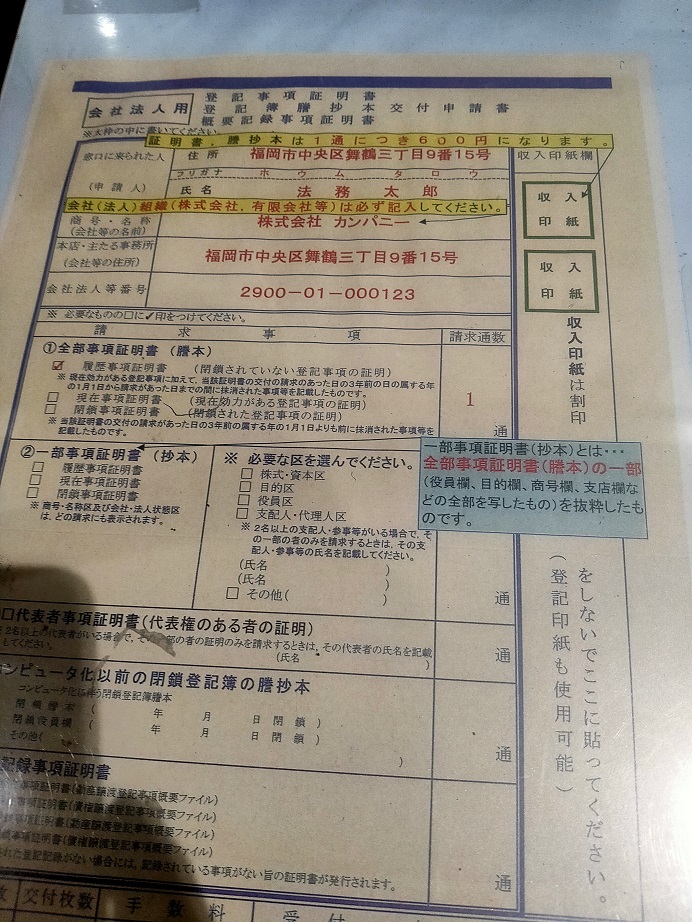 会社法人用
登記事項証明書
登記簿謄抄本交付申請書
概要記録事項証明書
※太枠の中に書いてください。
証明書,謄抄本は1通につき600円になります。
窓口に来られた人
(申請人)
住所
福岡市中央区舞鶴三丁目9番15号
収入印紙欄
フリガナ
ホウム タロウ
氏名
法務 太郎
収入
印紙
会社(法人)組織(株式会社,有限会社等)は必ず記入してください。
商号・名称
(会社等の名前)
株式会社 カンパニー
本店・主たる事務所
(会社等の住所)
福岡市中央区舞鶴三丁目9番15号
収入
印紙
会社法人等番号
2900-01-000123
※ 必要なものの□に✓印をつけてください。
請求事項
請求通数
①全部事項証明書(謄本)
☑ 履歴事項証明書 (閉鎖されていない登記事項の証明)
※ 現在効力がある登記事項に加えて,当該証明書の交付の請求のあった日の3年前の日の属する年
の1月1日から請求があった日までの間に抹消された事項等を記載したものです。
□ 現在事項証明書 (現在効力がある登記事項の証明)
□ 閉鎖事項証明書 (閉鎖された登記事項の証明)
※ 当該証明書の交付の請求があった日の3年前の属する年の1月1日よりも前に抹消された事項等を
記載したものです。
1
通
②一部事項証明書(抄本)
□ 履歴事項証明書
□ 現在事項証明書
□ 閉鎖事項証明書
※ 商号・名称区及び会社・法人状態区
は,どの請求にも表示されます。
※ 必要な区を選んでください。
□ 株式・資本区
□ 目的区
□ 役員区
□ 支配人・代理人区
※ 2名以上の支配人・参事等がいる場合で,そ
の一部の者のみを請求するときは,その支
配人・参事等の氏名を記載してください。
(氏名 )
(氏名 )
□ その他( )
通
一部事項証明書(抄本)とは・・・
全部事項証明書(謄本)の一部
(役員欄、目的欄、商号欄、支店欄な
どの全部を写したもの)を抜粋したも
のです。
□代表者事項証明書(代表権のある者の証明)
※ 2名以上の代表者がいる場合で,その一部の者の証明のみを請求するときは,その代表者の氏名を記載
してください。
(氏名 )
通
コンピュータ化以前の閉鎖登記簿の謄抄本
コンピュータ化に伴う閉鎖登記簿謄本
閉鎖謄本( 年 月 日閉鎖)
閉鎖役員欄( 年 月 日閉鎖)
その他( )
通
記録事項証明書
事項証明書(動産譲渡登記事項概要ファイル)
事項証明書(債権譲渡登記事項概要ファイル)
事項証明書(動産譲渡登記事項概要ファイル)
事項証明書(債権譲渡登記事項概要ファイル)
された登記記録がない場合には,記録されている事項がない旨の証明書が発行されます。
通
交付枚数
手数料
受付
収入印紙は割印
をしないでここに貼ってください。
(登記印紙も使用可能)